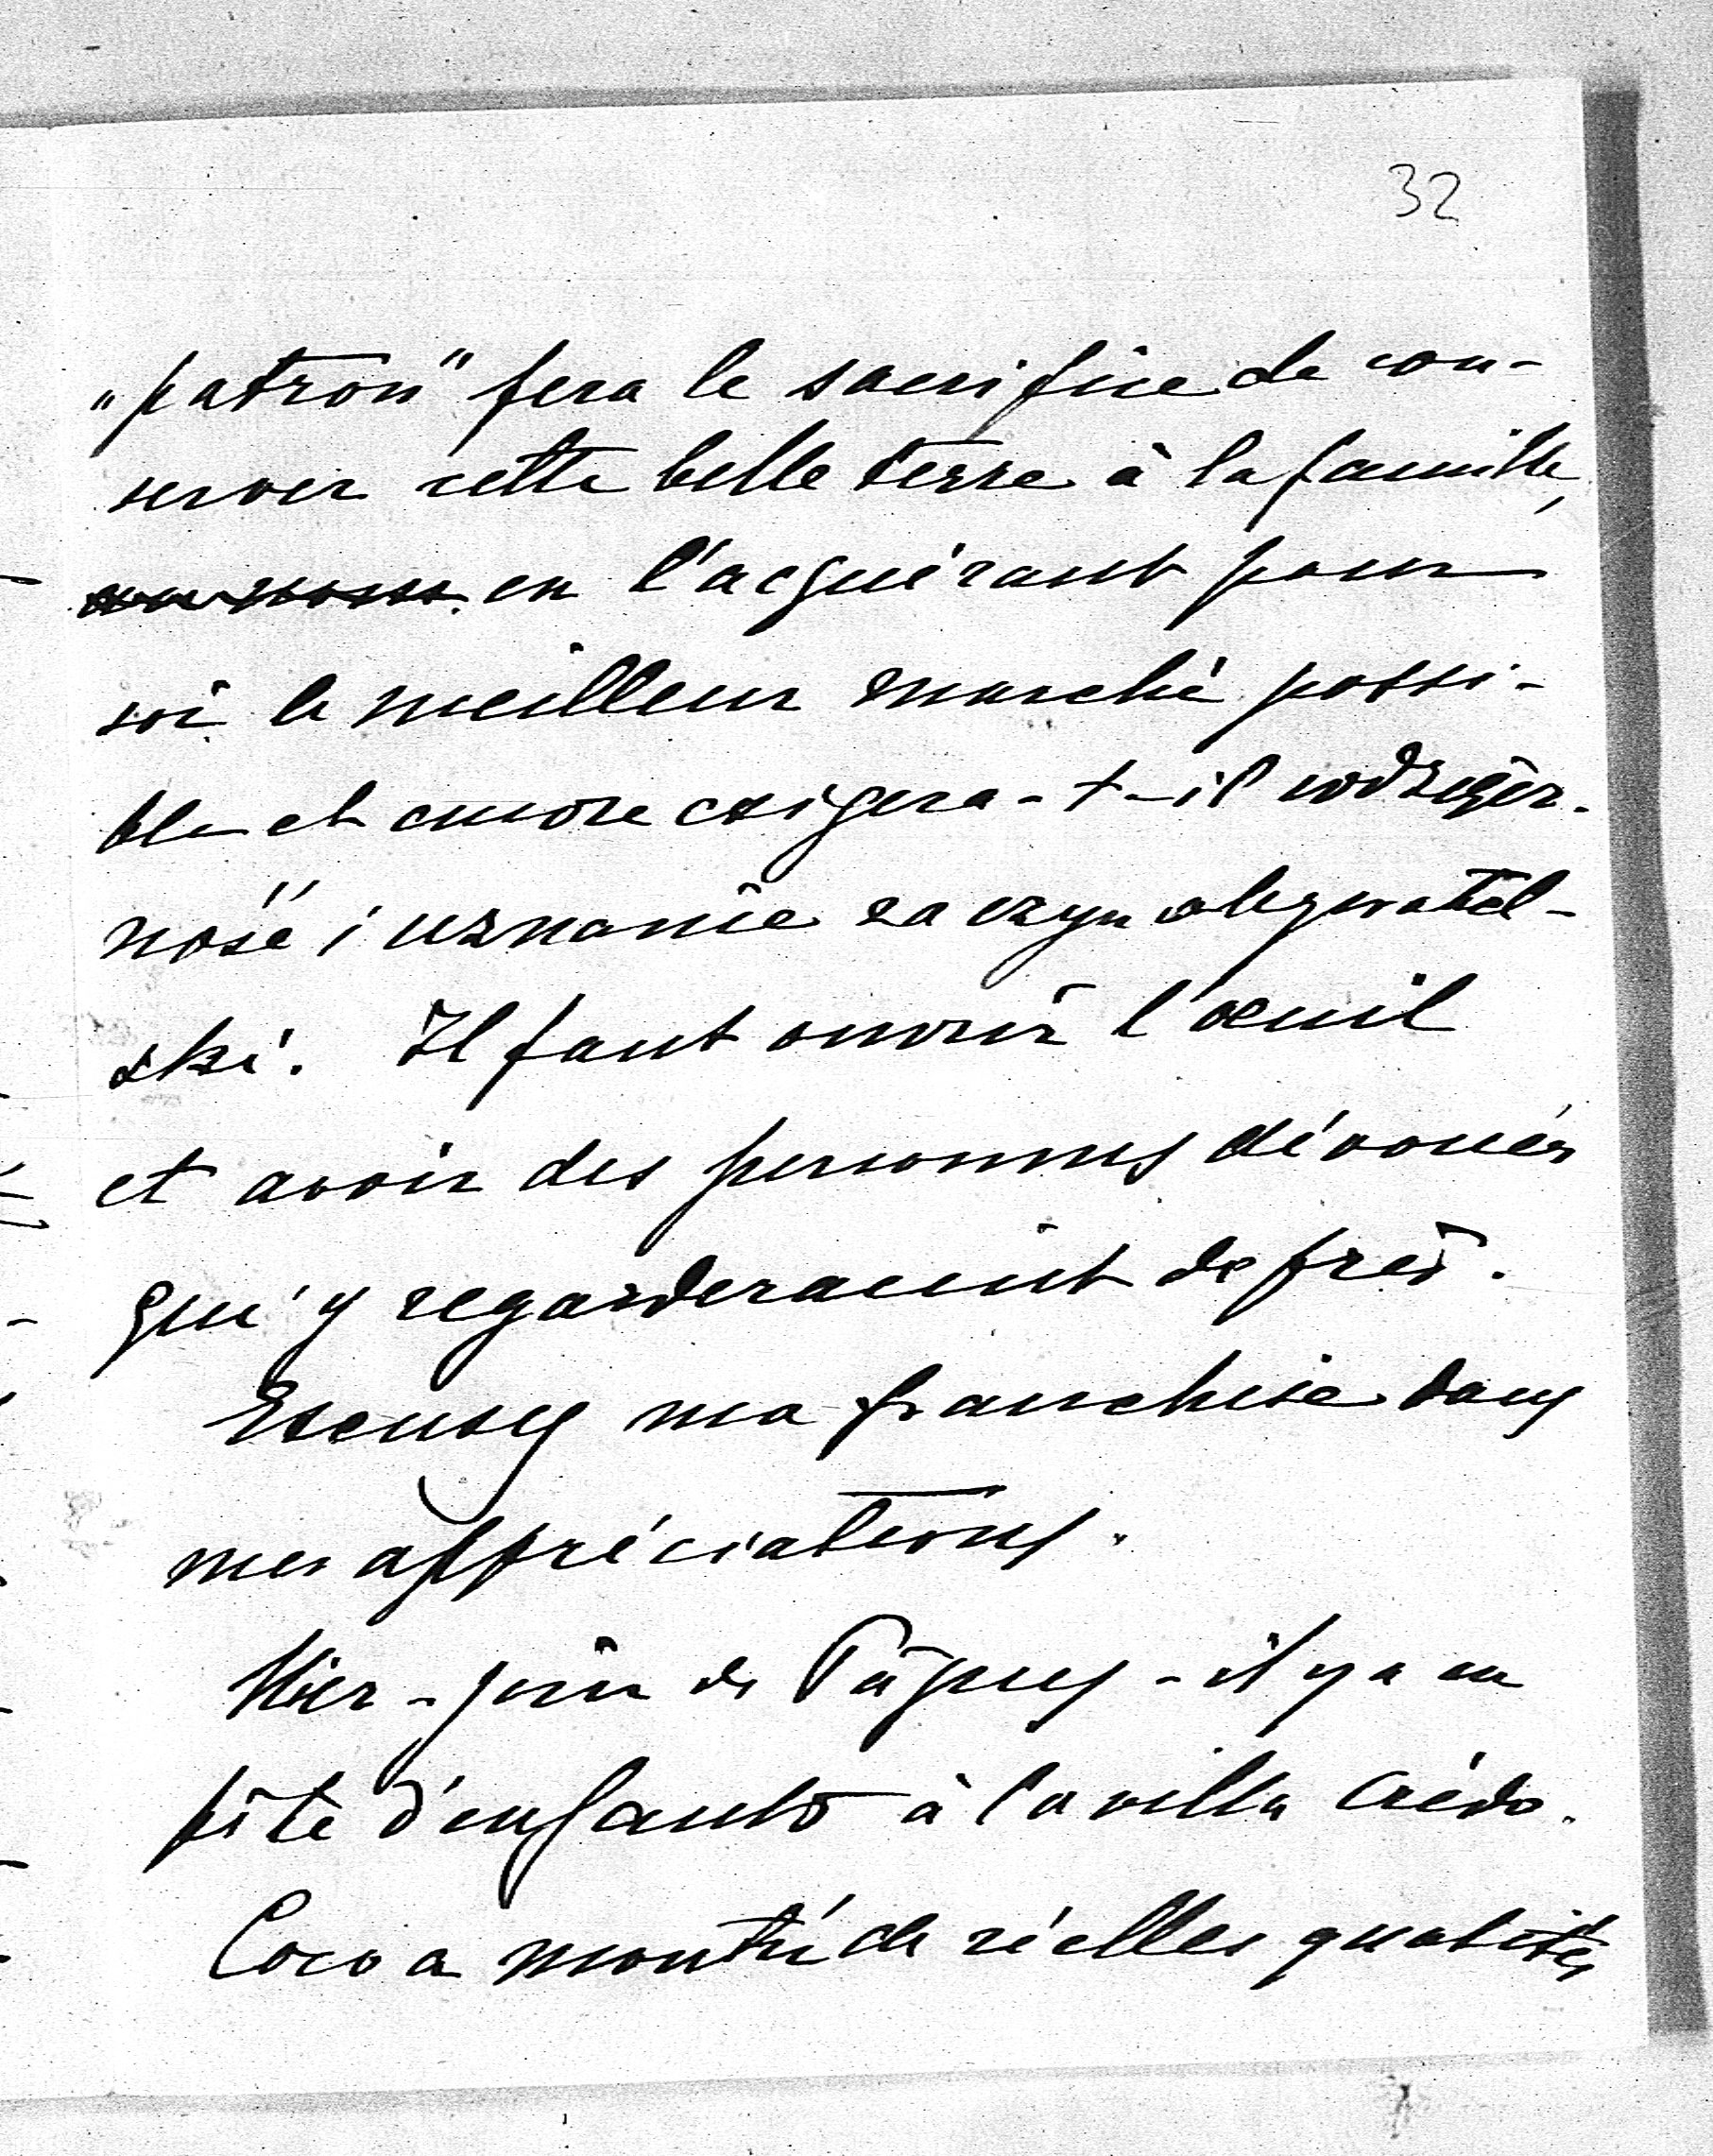 32
„patron" fera le sacrifice de con-
server cette belle terre à la famille,
en l'acquérant pour
soi le meilleur marché possi-
ble et encore exigera-t-il wdzięcz-
ność i uznanie za czyn obywatel-
ski. Il faut ouvrir l'œuil
et avoir des personnes dévouées
qui y regarderaeint de près.
Excusez ma franchise dans
mes appréciations.
Hier - jour de Pâques - il y a eu
fête d'enfants à la villa Crédo.
Coco a montré de réelles qualités